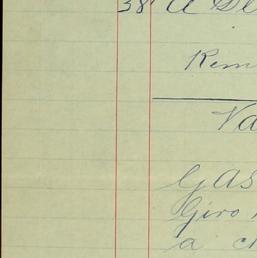 38 A
Rem
Va
GAS
Giro
a c